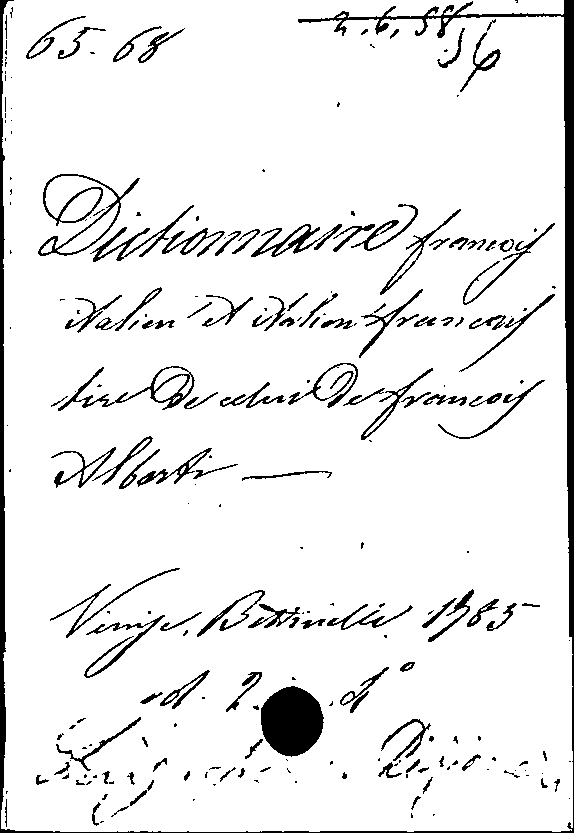 65-68
2.6.58
56
Dictionnaire françois
italien et italien françois
tiré de celui de françois
Alberti —
Venise, Bettinelli, 1785
vol. 2. 4°